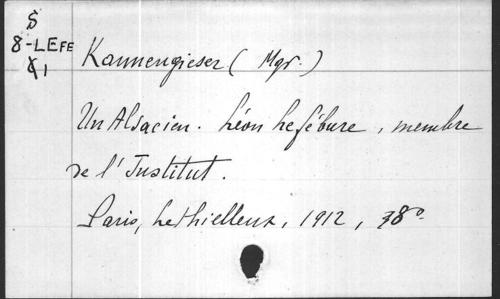 S
8-LEFE
1
Kannengieser (Mgr.)
Un Alsacien. Léon Lefébure, membre
de l'Institut.
Paris, Lethielleux, 1912, 8°.